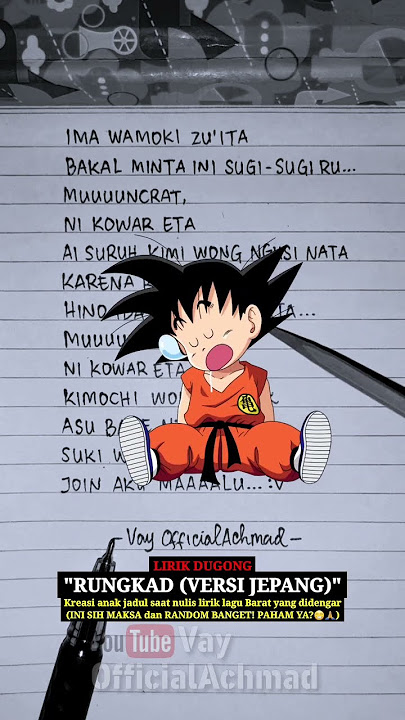 IMA WAMOKI ZU'ITA
BAKAL MINTA INI SUGI-SUGI RU...
MUUUUNCRAT,
NI KOWAR ETA
AI SURUH KIMI WONG NGISI NATA
KARENA
HINO
MUUUU
NI KOWAR ETA
KIMOCHI
ASU
SUKI
JOIN AKU MAAAALU... :V
-Vay OfficialAchmad-
LIRIK DUGONG
"RUNGKAD (VERSI JEPANG)"
Kreasi anak jadul saat nulis lirik lagu Barat yang didengar
(INI SIH MAKSA dan RANDOM BANGET! PAHAM YA?😳🙏)
YouTube Vay
OfficialAchmad